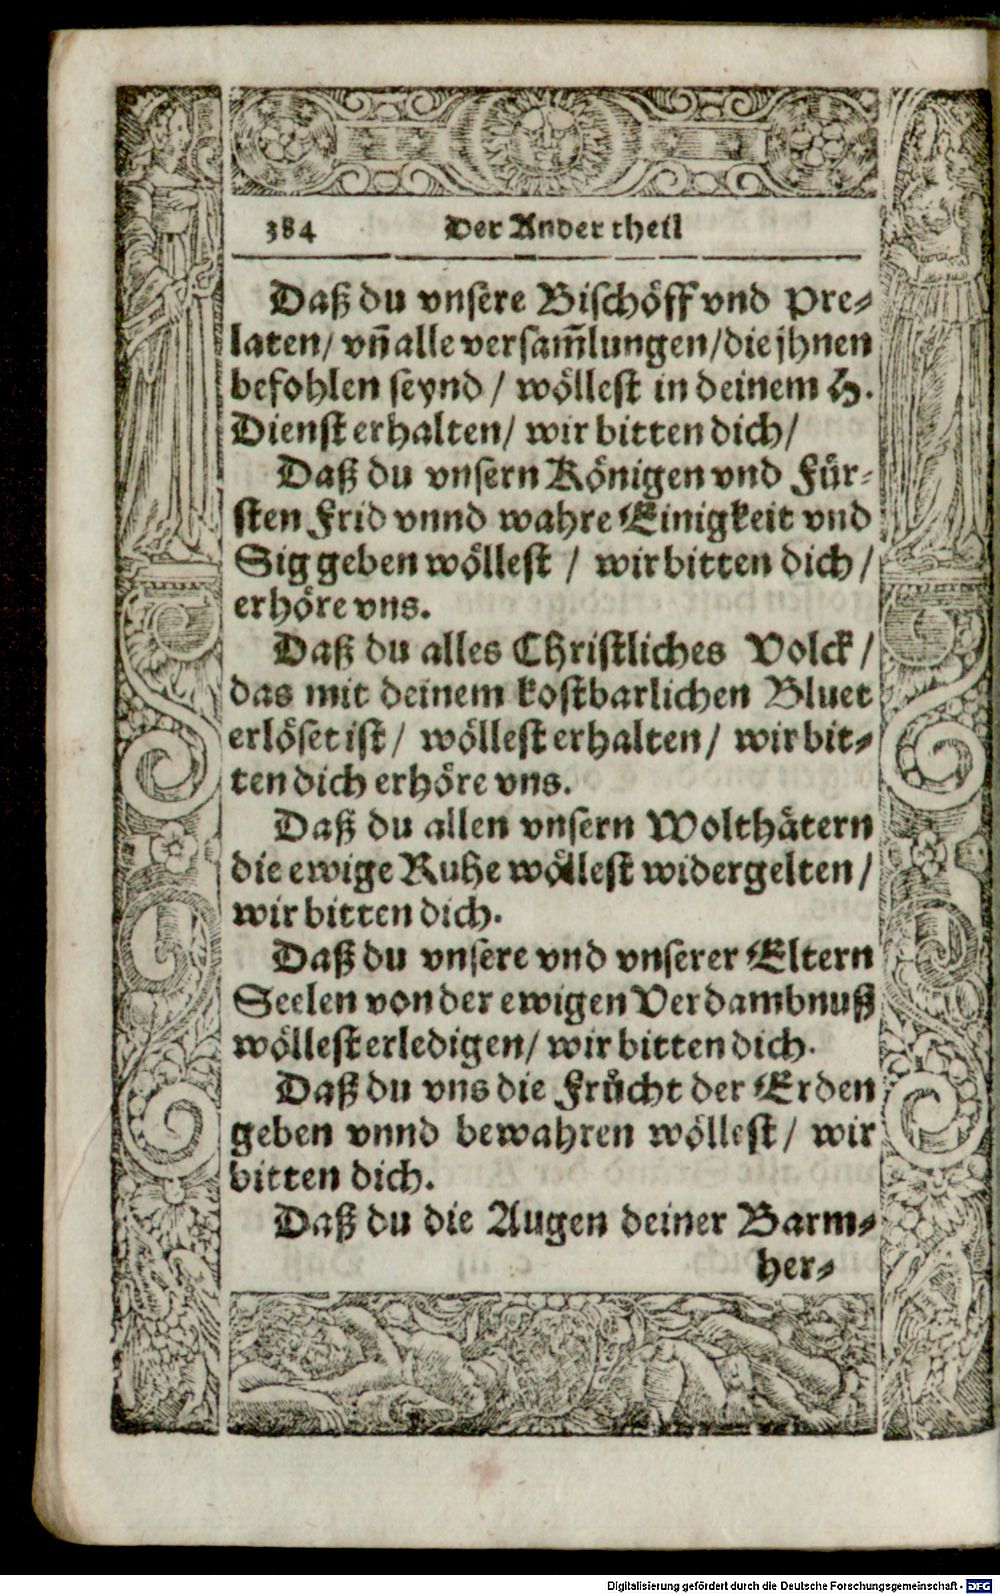 384 Der Ander theil
Daß du vnsere Bischöff vnd Pre-
laten/ vñ alle versam̃lungen/die jhnen
befohlen seynd / wöllest in deinem H.
Dienst erhalten/ wir bitten dich/
Daß du vnsern Königen vnd Für-
sten Frid vnnd wahre Einigkeit vnd
Sig geben wöllest / wir bitten dich /
erhöre vns.
Daß du alles Christliches Volck /
das mit deinem kostbarlichen Bluet
erlöset ist/ wöllest erhalten/ wir bit-
ten dich erhöre vns.
Daß du allen vnsern Wolthätern
die ewige Ruhe wöllest widergelten /
wir bitten dich.
Daß du vnsere vnd vnserer Eltern
Seelen von der ewigen Verdambnuß
wöllest erledigen/ wir bitten dich.
Daß du vns die Frücht der Erden
geben vnnd bewahren wöllest/ wir
bitten dich.
Daß du die Augen deiner Barm-
her-
Digitalisierung gefördert durch die Deutsche Forschungsgemeinschaft - DFG